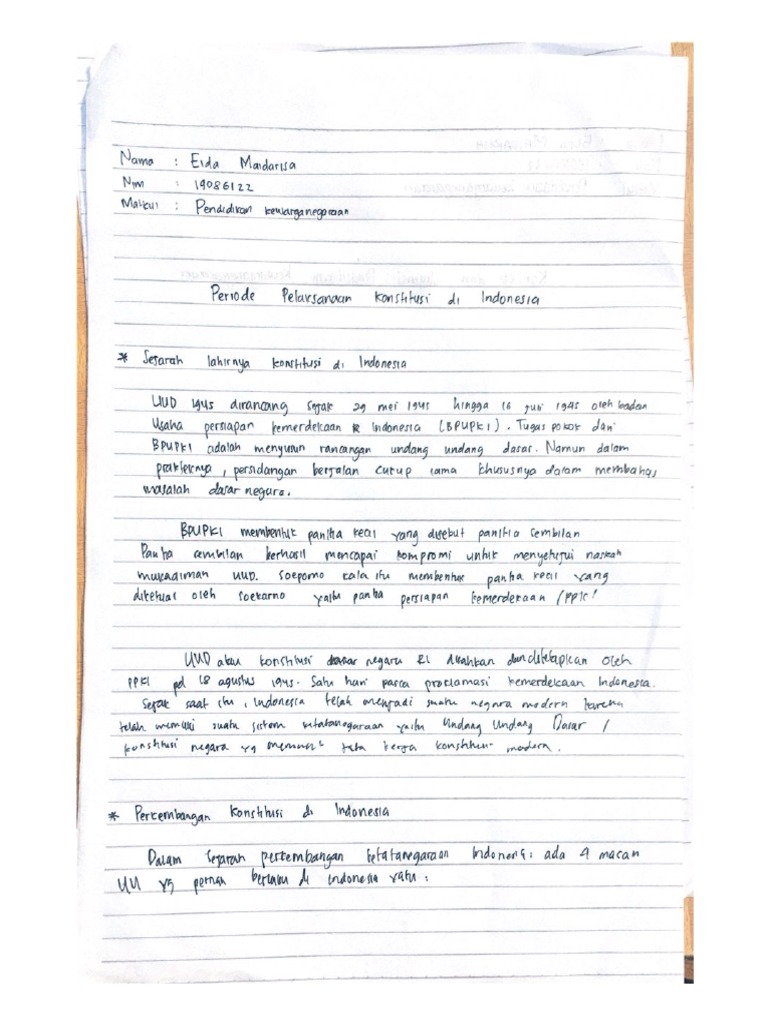 Nama : Elda Maidarisa
Nim : 19086122
Matkul : Pendidikan kewarganegaraan
Periode Pelaksanaan Konstitusi di Indonesia
* Sejarah lahirnya konstitusi di Indonesia
UUD 1945 dirancang sejak 29 mei 1945 hingga 16 juli 1945 oleh badan
Usaha persiapan kemerdekaan Indonesia (BPUPKI). Tugas pokok dari
BPUPKI adalah menyusun rancangan undang undang dasar. Namun dalam
prakteknya, persidangan berjalan cukup lama khususnya dalam membahas
masalah dasar negara.
BPUPKI membentuk panitia kecil yang disebut panitia sembilan
Panitia sembilan berhasil mencapai kompromi untuk menyetujui naskah
mukadimah UUD. Soepomo kala itu membentuk panitia kecil yang
diketuai oleh soekarno yaitu panitia persiapan kemerdekaan /PPKI/
UUD atau konstitusi negara RI disahkan dan ditetapkan oleh
PPKI pd 18 agustus 1945. Satu hari pasca proclamasi kemerdekaan Indonesia.
Sejak saat itu, Indonesia telah menjadi suatu negara modern karena
telah memiliki suatu sistem ketatanegaraan yaitu Undang Undang Dasar /
konstitusi negara yg memuat tata kerja konstitusi modern.
* Perkembangan Konstitusi di Indonesia
Dalam sejarah perkembangan ketatanegaraan Indonesia ada 4 macam
UU yg pernah berlaku di indonesia yaitu :